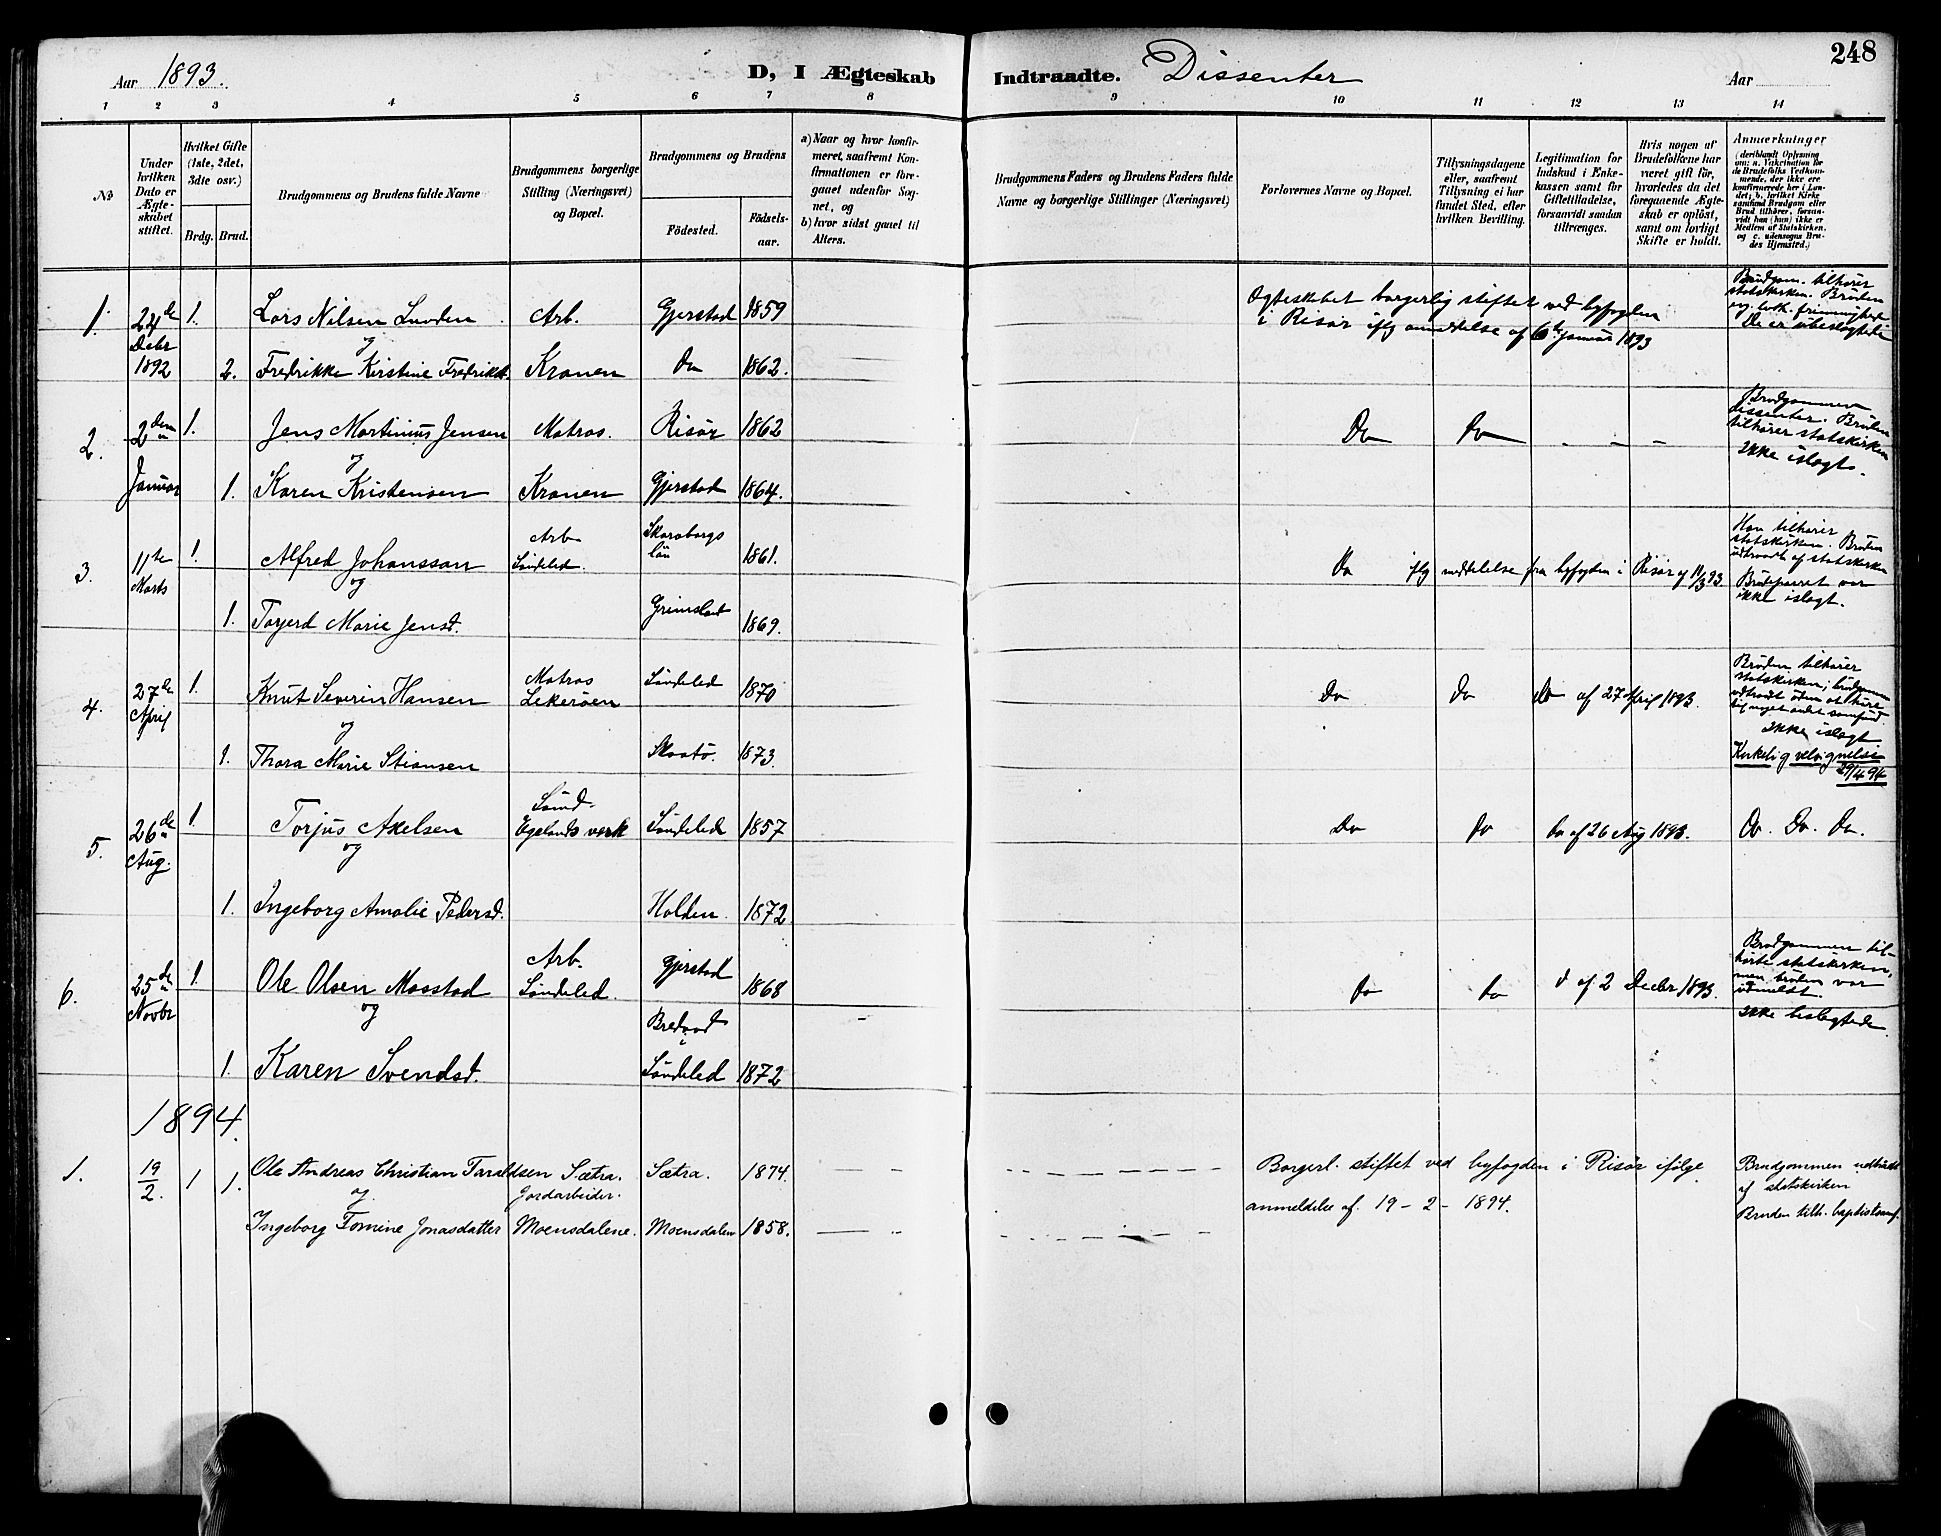 Aar 1893.
D, I Ægteskab Indtraadte. Dissenter
Aar
248
1 2 3 4 5 6 7 8 9 10 11 12 13 14
No
Under hvilken Dato er Ægteskabet stiftet.
Hvilket Gifte (1ste, 2det, 3die osv.)
Brdg. Brud.
Brudgommens og Brudens fulde Navne
Brudgommens borgerlige Stilling (Næringsvei) og Bopæl.
Brudgommens og Brudens
Fødested.
Fødsels-aar.
a) Naar og hvor konfirmeret, saafremt Konfirmationen er foregaaet udenfor Sognet, og
b) hvor sidst gaaet til Alters.
Brudgommens Faders og Brudens Faders fulde Navne og borgerlige Stillinger (Næringsvei)
Forlovernes Navne og Bopæl.
Tillysningsdagene eller, saafremt Tillysning ei har fundet Sted, efter hvilken Bevilling.
Legitimation for Indskud i Enkekassen samt for Giftetilladelse, forsaavidt saadan tiltrænges.
Hvis nogen af Brudefolkene har været gift før, hvorledes da det foregaaende Ægteskab er opløst, samt om lovligt Skifte er holdt.
Anmærkninger
(deriblandt Oplysning om: a. Vakcination for de Brudefolks Vedkommende, der ikke ere konfirmerede her i Landet; b. hvilket Kirkesamfund Brudgom eller Brud tilhører, forsaavidt han (hun) ikke er Medlem af Statskirken, og c. udensogns Brudes Hjemsted.)
1. 24de Debr 1892 1. Lars Nilsen Arb. Gjerstad 1859
og
2. Fredrikke Kirstine Fredriksd. Kranen Do 1862.
Ogteskabet borgerlig stiftet ved byfogden
i Risør iflg anmeldelse af 6te Januar 1893
Brudgom. tilhører
statskirken. Bruden
ev. luth. frimenighed
De er ubeslegtede
2. 2den Januar 1. Jens Martinius Jensen Matros. Risør 1862
og
1. Karen Kristensen Kranen Gjerstad 1864.
Do Do – – –
Brudgommen
dissenter. Bruden
tilhører statskirken
ikke islegt.
3. 11te Marts 1. Alfred Johansson Arb Søndeled. Skaraborgs län 1861.
og
1. Marie Jensd. Grimstad 1869.
Do iflg meddelelse fra byfogden i Risør af 11/3 93.
Han tilhører
statskirken. Bruden
udtraadt af statskirken
Brudeparret var
ikke islegt.
4. 27de April 1. Knut Severin Hansen Matros Søndeled 1870
og
1. Thora Marie Stiansen Skaatø. 1873.
Do Do do af 27 April 1893.
Bruden tilhører
statskirken; brudgommen
udtraadt uden at høre
til noget andet samfund.
ikke islegt
Kirkelig velsignelse
29/4 94
5. 26de Aug. 1. Torjus Akelsen Egelands verk Søndeled 1857
og
1. Ingeborg Amalie Pedersd. Holden 1872
Do Do do af 26 Aug 1893. Do. Do. Do.
6. 25de Novbr 1. Ole Olsen Mosstad Arb. Søndeled. Gjerstad 1868
og
1. Karen Svendsd. Søndeled 1872
Do Do d af 2 Decbr 1893.
Brudgommen til-
hørte statskirken,
men bruden var
udmeldt.
ikke beslegtede
1894.
1. 19/2. 1 1. Ole Andreas Christian Taraldsen Sætra. Jordarbeider. Sætra. 1874.
og
Ingeborg Tomine Jonasdatter Moensdalene. Moensdalen 1858.
Borgerl. stiftet ved byfogden i Risør ifølge
anmeldelse af. 19 - 2 - 1894.
Brudgommen udtraadt
af statskirken
Bruden tilh. baptistsamf.